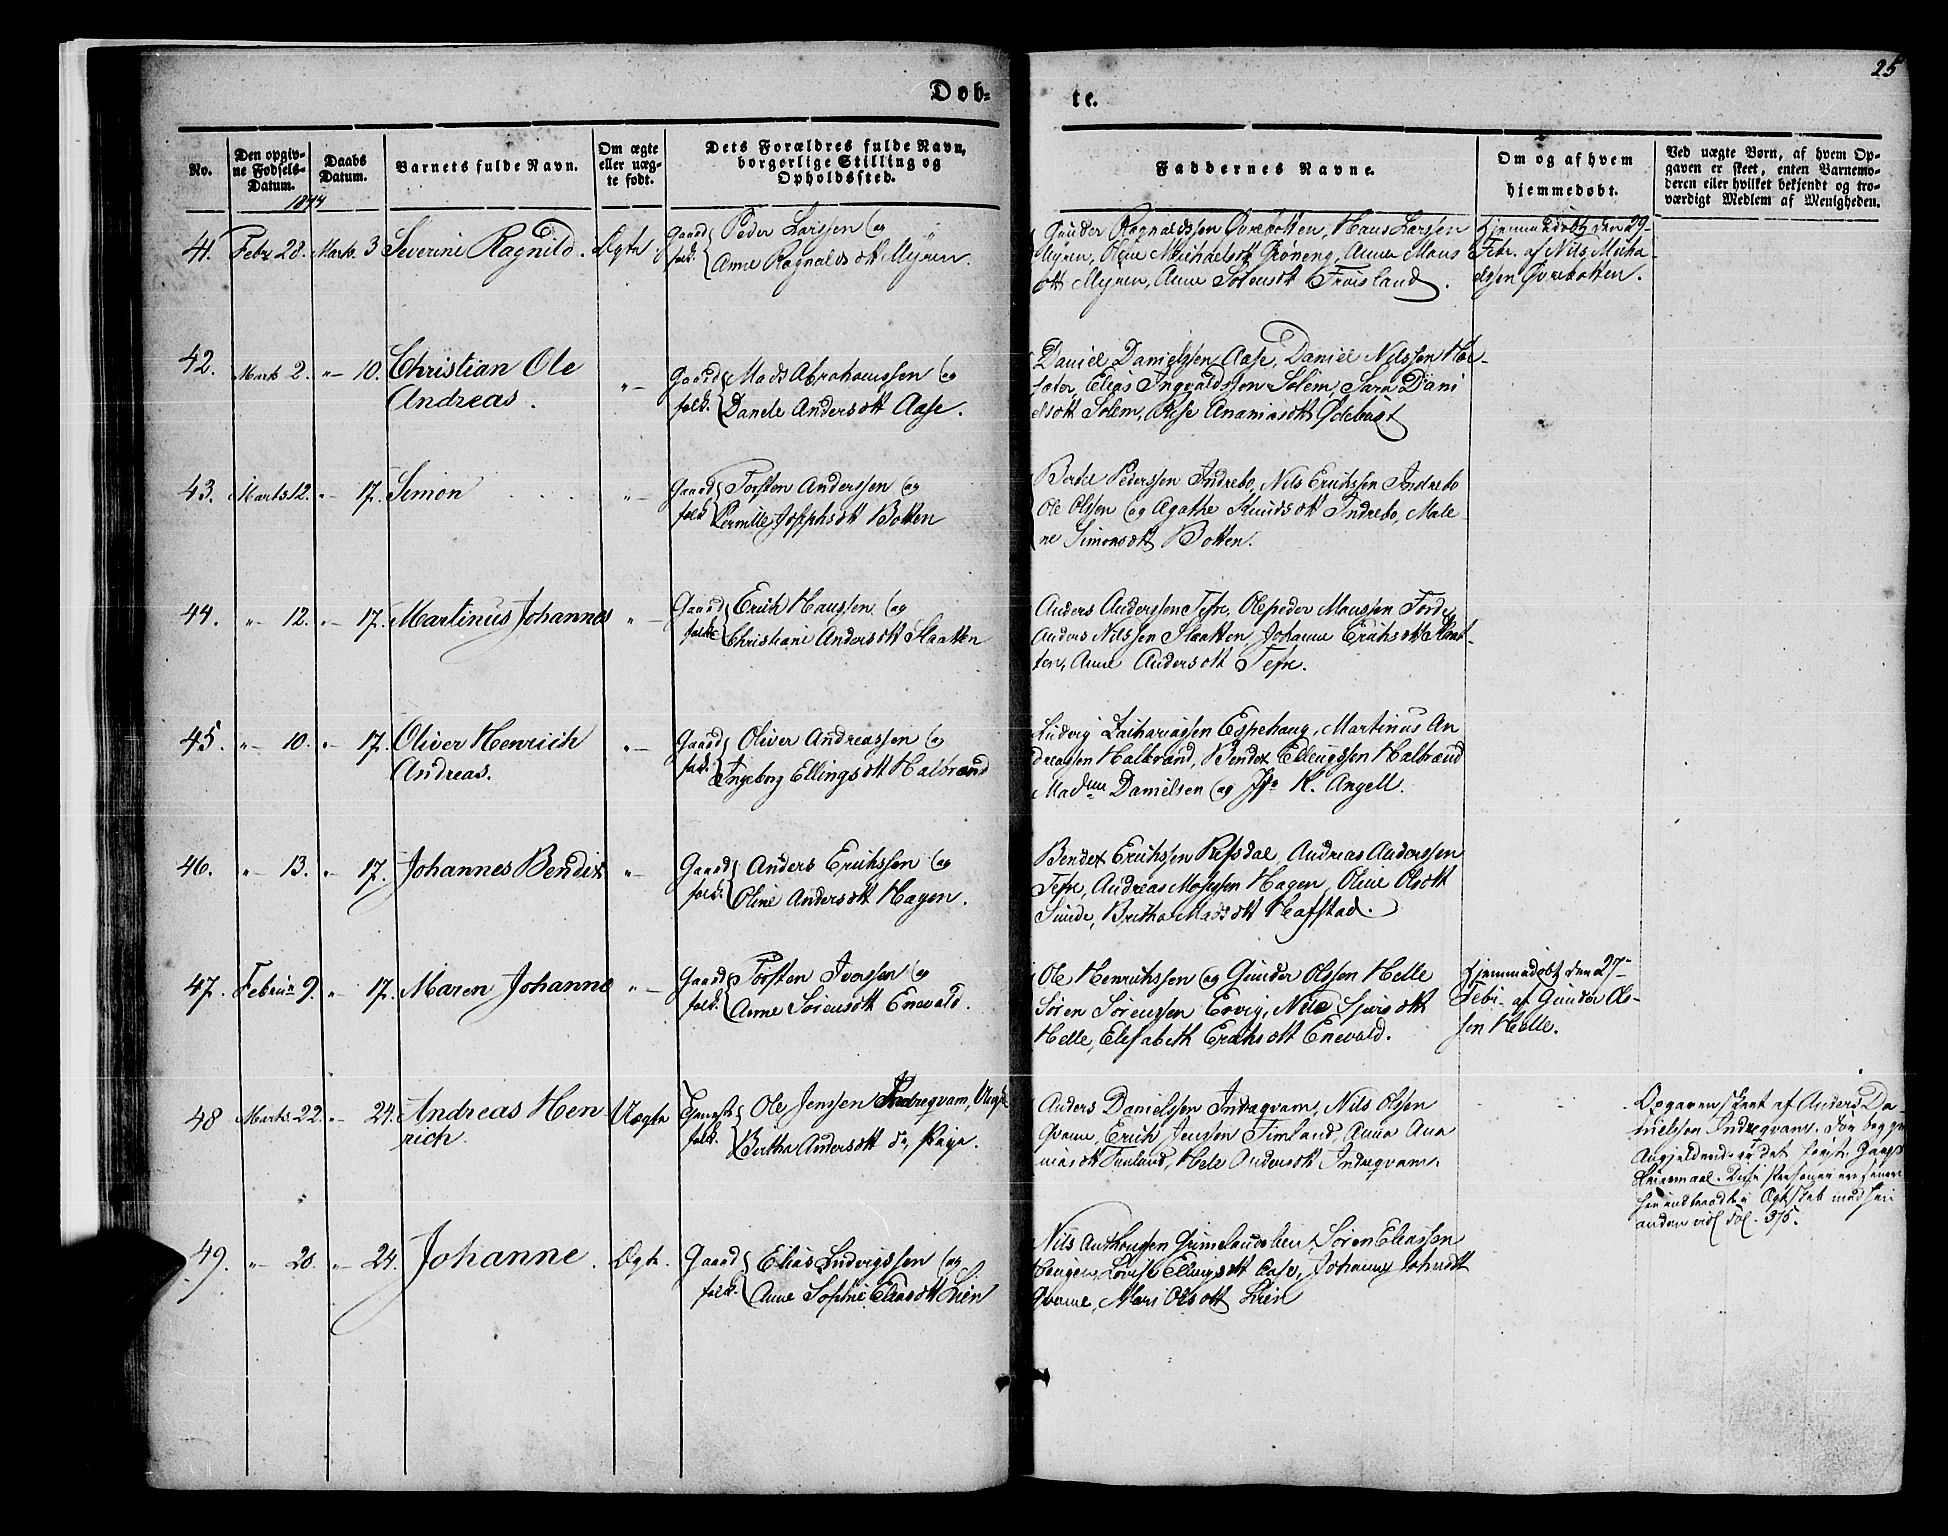 25
Døb-
te.
No.
Den opgiv-
ne Fødsels-
Datum.
Daabs
Datum.
Barnets fulde Navn.
Om ægte
eller uæg-
te født.
Dets Forældres fulde Navn,
borgerlige Stilling og
Opholdssted.
Faddernes Navne.
Om og af hvem
hjemmedøbt.
Ved uægte Børn, af hvem Op-
gaven er skeet, enten Barnemo-
deren eller hvilket bekjendt og tro-
værdigt Medlem af Menigheden.
1844
41. Febr 28. Marts 3 Severine Ragnild. Ægte
Gaard
folk.
Peder Larssen og
Anne Ragnaldsdtt Myren.
Gunder Ragnaldssen Øvrebotten, Hans Larsen
Myren, Oline Michaelsdtt Grøneng, Anna Mons
dtt Myren, Anne Solensdtt Froisland.
Hjemmedøbt den 29-
Febr. af Nils Micha-
elsen Øvrebotten.
42. Marts 2. "- 10. Christian Ole
Andreas.
"-
Gaard
folk.
Mads Abrahamssen og
Danele Andersdtt Aase.
Daniel Danielssen Aase, Daniel Nilssen Hor-
sator, Elias Ingvaldssen Solem, Sara Dani
elsdtt Solem, Aase Ananiasdtt Ødebast
43. Marts 12. "- 17. Simon
"-
Gaard
folk
Torsten Anderssen og
Pernille Josephsdtt Botten
Bertel Pederssen Indrebo, Nils Erichssen Indrebo
Ole Olssen og Agathe Knudsdtt Indrebo, Male
ne Simonsdtt Botten.
44. "- 12. "- 17. Martinus Johannes "-
Gaard
folk
Erich Hanssen og
Christiane Andersdtt Slaatten
Anders Anderssen Tefre, Ole peder Monssen Førde
Anders Nilssen Slaatten, Johanne Erichsdtt Slaat-
ten, Anne Andersdtt Tefre.
45. "- 10. "- 17. Oliver Henrich
Andreas.
"-
Gaard
folk.
Oliver Andreassen og
Ingeborg Ellingsdtt Halbrend
Ludvig Zachariassen Espehaug, Martinus An
dreassen Halbrand, Bendex Ellingssen Halbrænd
Madme Danielsen og Jfr K. Angell.
46. "- 13. "- 17. Johannes Bendix "-
Gaard
folk.
Anders Erichssen og
Oline Andersdtt Hagen.
Bendex Erichssen Refsdal, Andreas Anderssen
Tefre, Andreas Mosessen Hagen, Oline Olsdtt
Sunde, Britha Madsdtt Hafstad.
47. Februar 9. "- 17. Maren Johanne "-
Gaard
folk.
Torsten Iverssen og
Anne Sørensdtt Enevald.
Ole Henrichssen og Gunder Olssen Helle
Søren Sørenssen Ervig, Nille Siursdtt
Helle, Elisabeth Erichsdtt Enevald.
Hjemmedøbt den 27-
Febr. af Gunder Ols-
sen Helle.
48 Marts 22. "- 24. Andreas Hen
rich.
Uægte
Tjeneste
folk.
Ole Jenssen Indreqvam, Ungk
Bertha Andersdtt do, Pige.
Anders Danielssen Indreqvam, Nils Olssen
Qvame, Erich Jenssen Timland, Anna Ana
niasdtt Timland, Hele Andersdtt Indreqvam.
Opgaven skeet af Anders Da-
nielssen Indreqvam. For begge
Angjeldende er det første Gangs
Leiermaal. Disse Personer ere senere
hen indtraadte i Ægteskab med hin
anden vid fol. 375.
49. "- 20. "- 24. Johanne. Ægte.
Gaard
folk.
Elias Ludvigssen og
Anne Sophie Eliasdtt Lien
Nils Anthonssen Grimelandslien, Søren Eliassen
Haugen, Lovise Ellingsdtt Aase, Johanne Johnsdtt
Qvame, Mari Olsdtt Lien